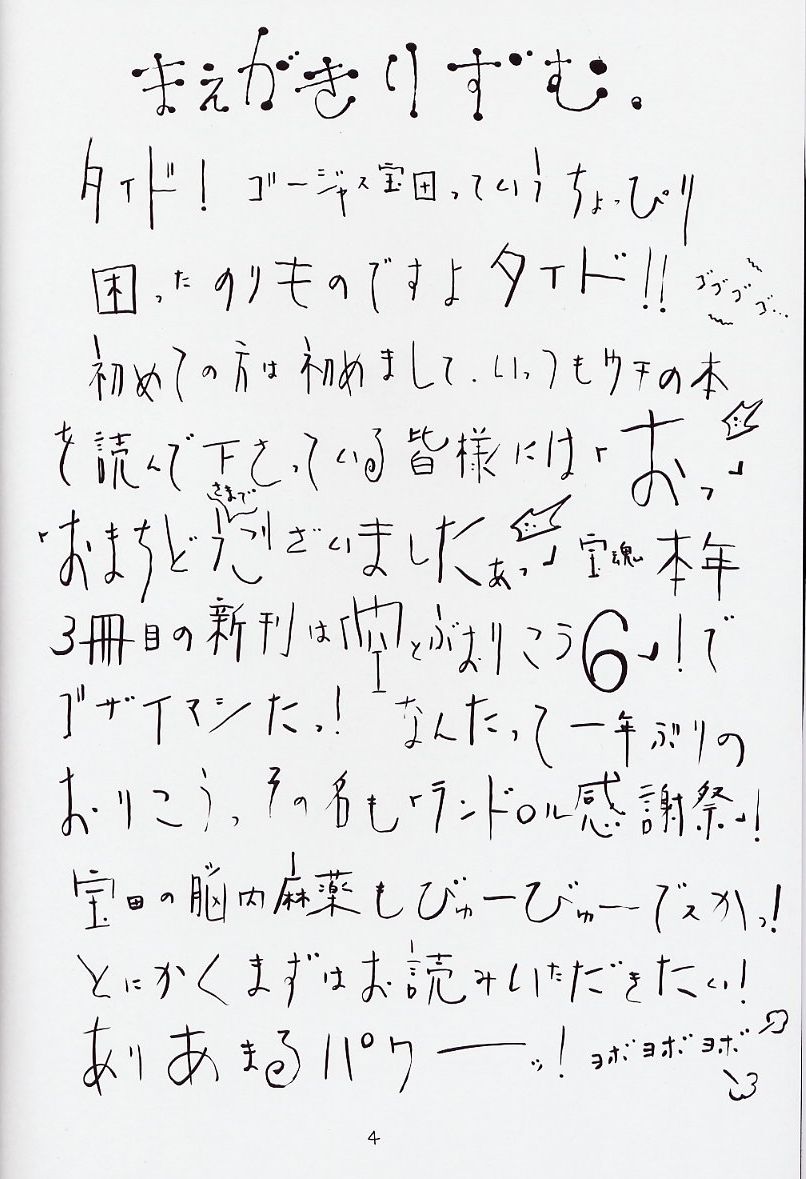 まえがきりずむ。
タイド！ ゴージャス宝田っていうちょっぴり
困ったのりものですよタイド!! ゴゴゴゴ…
初めての方は初めまして、いっつもウチの本
を読んで下さっている皆様には「おっ」
さまで
「おまちどうございましたあっ」宝魂 本年
3冊目の新刊は「空とぶおりこう6」！で
ゴザイマシたっ！ なんたって一年ぶりの
おりこうっ その名も「ランドロル感謝祭」！
宝田の脳内麻薬もびゅーびゅーでスかっ！
とにかくまずはお読みいただきたい！
ありあまるパワーッ！ ヨボヨボヨボ
4